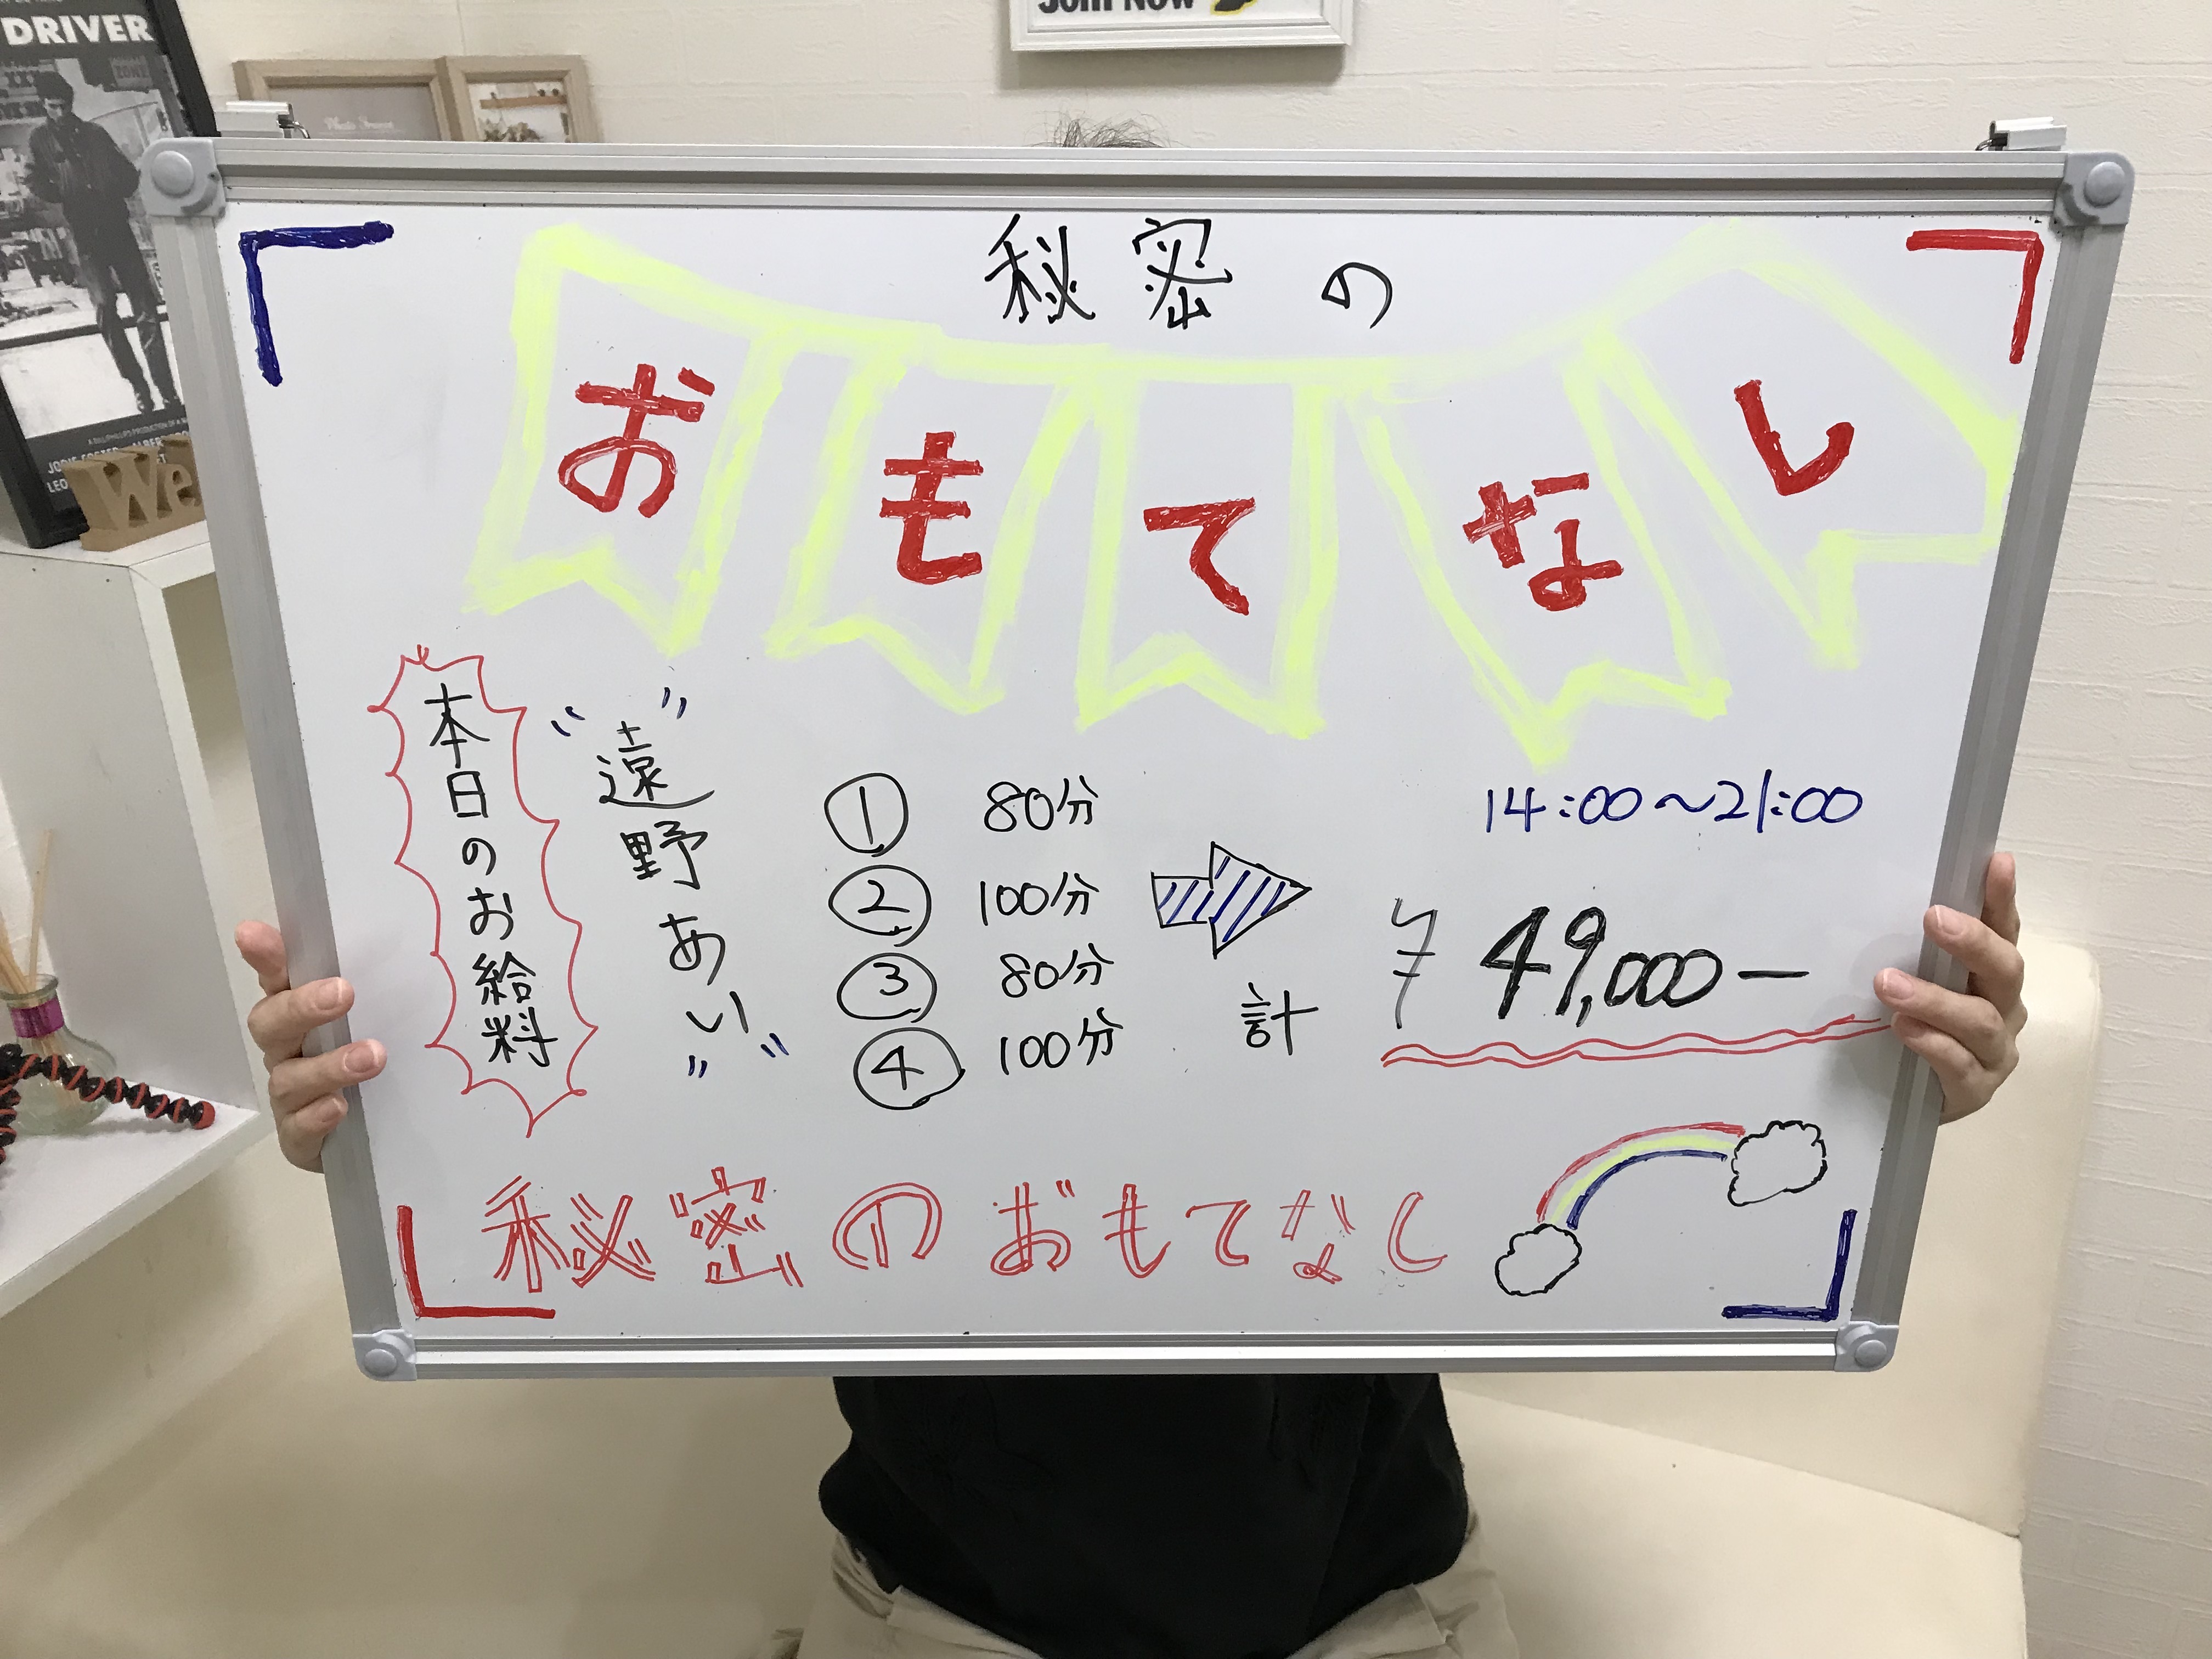 DRIVER
Join Now
Photo Frame
JODIE FOSTER
We
秘密の
おもてなし
本日のお給料
"遠野あい"
① 80分
② 100分
③ 80分
④ 100分
14:00〜21:00
計 ¥49,000ー
秘密のおもてなし